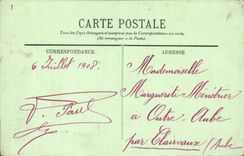 CARTE POSTALE
Tous les Pays étrangers n'acceptent pas la Correspondance au recto.
(Se renseigner à la Poste)
CORRESPONDANCE
ADRESSE
6 Juillet 1908.
P. Paul
Mademoiselle
Marguerite Ménétrier
à Outre-Aube
par Clairvaux (Aube